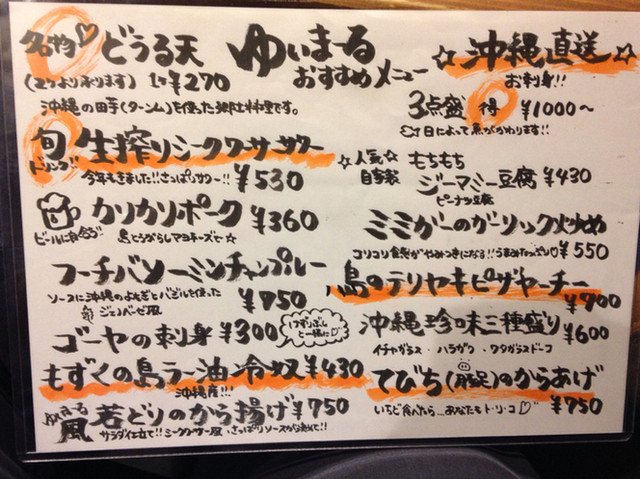 名物♡どぅる天
(2ヶより承ります) 1ヶ¥270
沖縄の田芋(ターンム)を使った郷土料理です。
ゆいまーる
おすすめメニュー
☆沖縄直送☆
お刺身!!
3点盛 得 ¥1000〜
日によって魚がかわります!!
旬 生搾りシークワーサーサワー
ドリンク!!
今年もきました!!さっぱりサワー!! ¥530
☆人気☆
自家製
もちもち
ジーマミー豆腐 ¥430
ピーナッツ豆腐
カリカリポーク ¥360
ビールに合う♪ 島とうがらしマヨネーズで☆
ミミガーのガーリック炒め
コリコリ食感がやみつきになる!! うまみたっぷり♡ ¥550
フーチバソーミンチャンプルー
ソースに沖縄のよもぎとバジルを使った
ジェノベーゼ風
¥750
島のテリヤキピザヤーチー
¥700
ゴーヤの刺身 ¥300
けずりぶしと一緒に♡
沖縄珍味三種盛り ¥600
イチャガラス・ハラガワ・ワタガラスドーフ
もずくの島ラー油冷奴 ¥430
沖縄産!!!
てびち(豚足)のからあげ
¥750
いちど食べたら...あなたもト・リ・コ♡
風 若どりのから揚げ ¥750
サラダ仕立て!! シークワーサー風、さっぱりソースがきめて!!